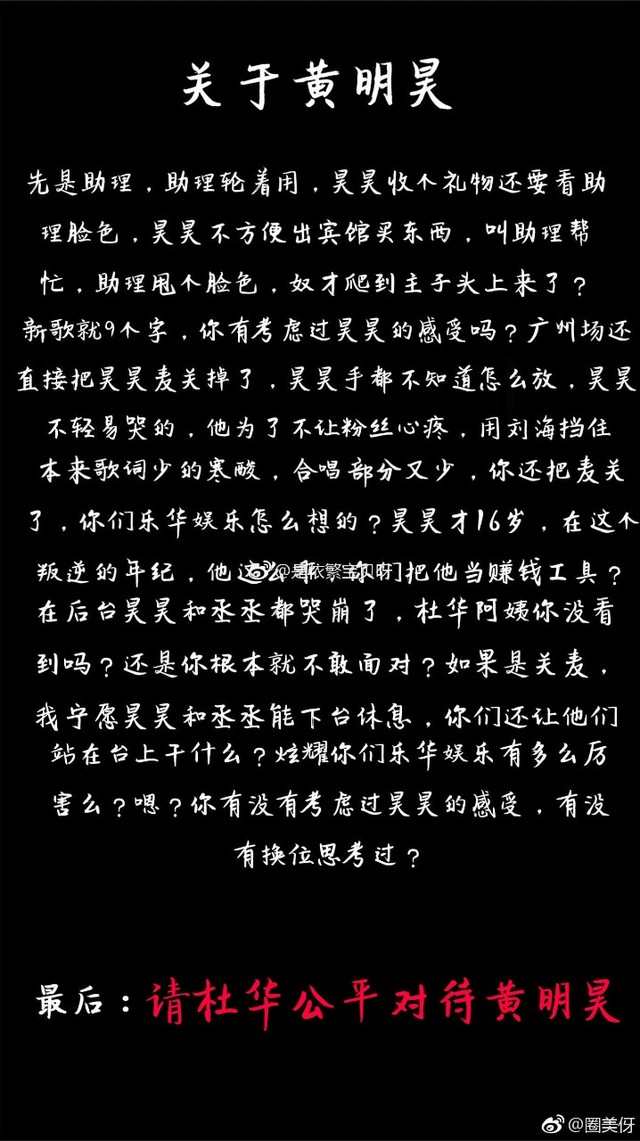 关于黄明昊
先是助理，助理轮着用，昊昊收个礼物还要看助
理脸色，昊昊不方便出宾馆买东西，叫助理帮
忙，助理甩个脸色，奴才爬到主子头上来了？
新歌就9个字，你有考虑过昊昊的感受吗？广州场还
直接把昊昊麦关掉了，昊昊手都不知道怎么放，昊昊
不轻易哭的，他为了不让粉丝心疼，用刘海挡住
本来歌词少的寒酸，合唱部分又少，你还把麦关
了，你们乐华娱乐怎么想的？昊昊才16岁，在这个
叛逆的年纪，他这么 你们把他当赚钱工具？
@是依繁宝贝呀
在后台昊昊和丞丞都哭崩了，杜华阿姨你没看
到吗？还是你根本就不敢面对？如果是关麦，
我宁愿昊昊和丞丞能下台休息，你们还让他们
站在台上干什么？炫耀你们乐华娱乐有多么厉
害么？嗯？你有没有考虑过昊昊的感受，有没
有换位思考过？
最后：请杜华公平对待黄明昊
@圈美伢